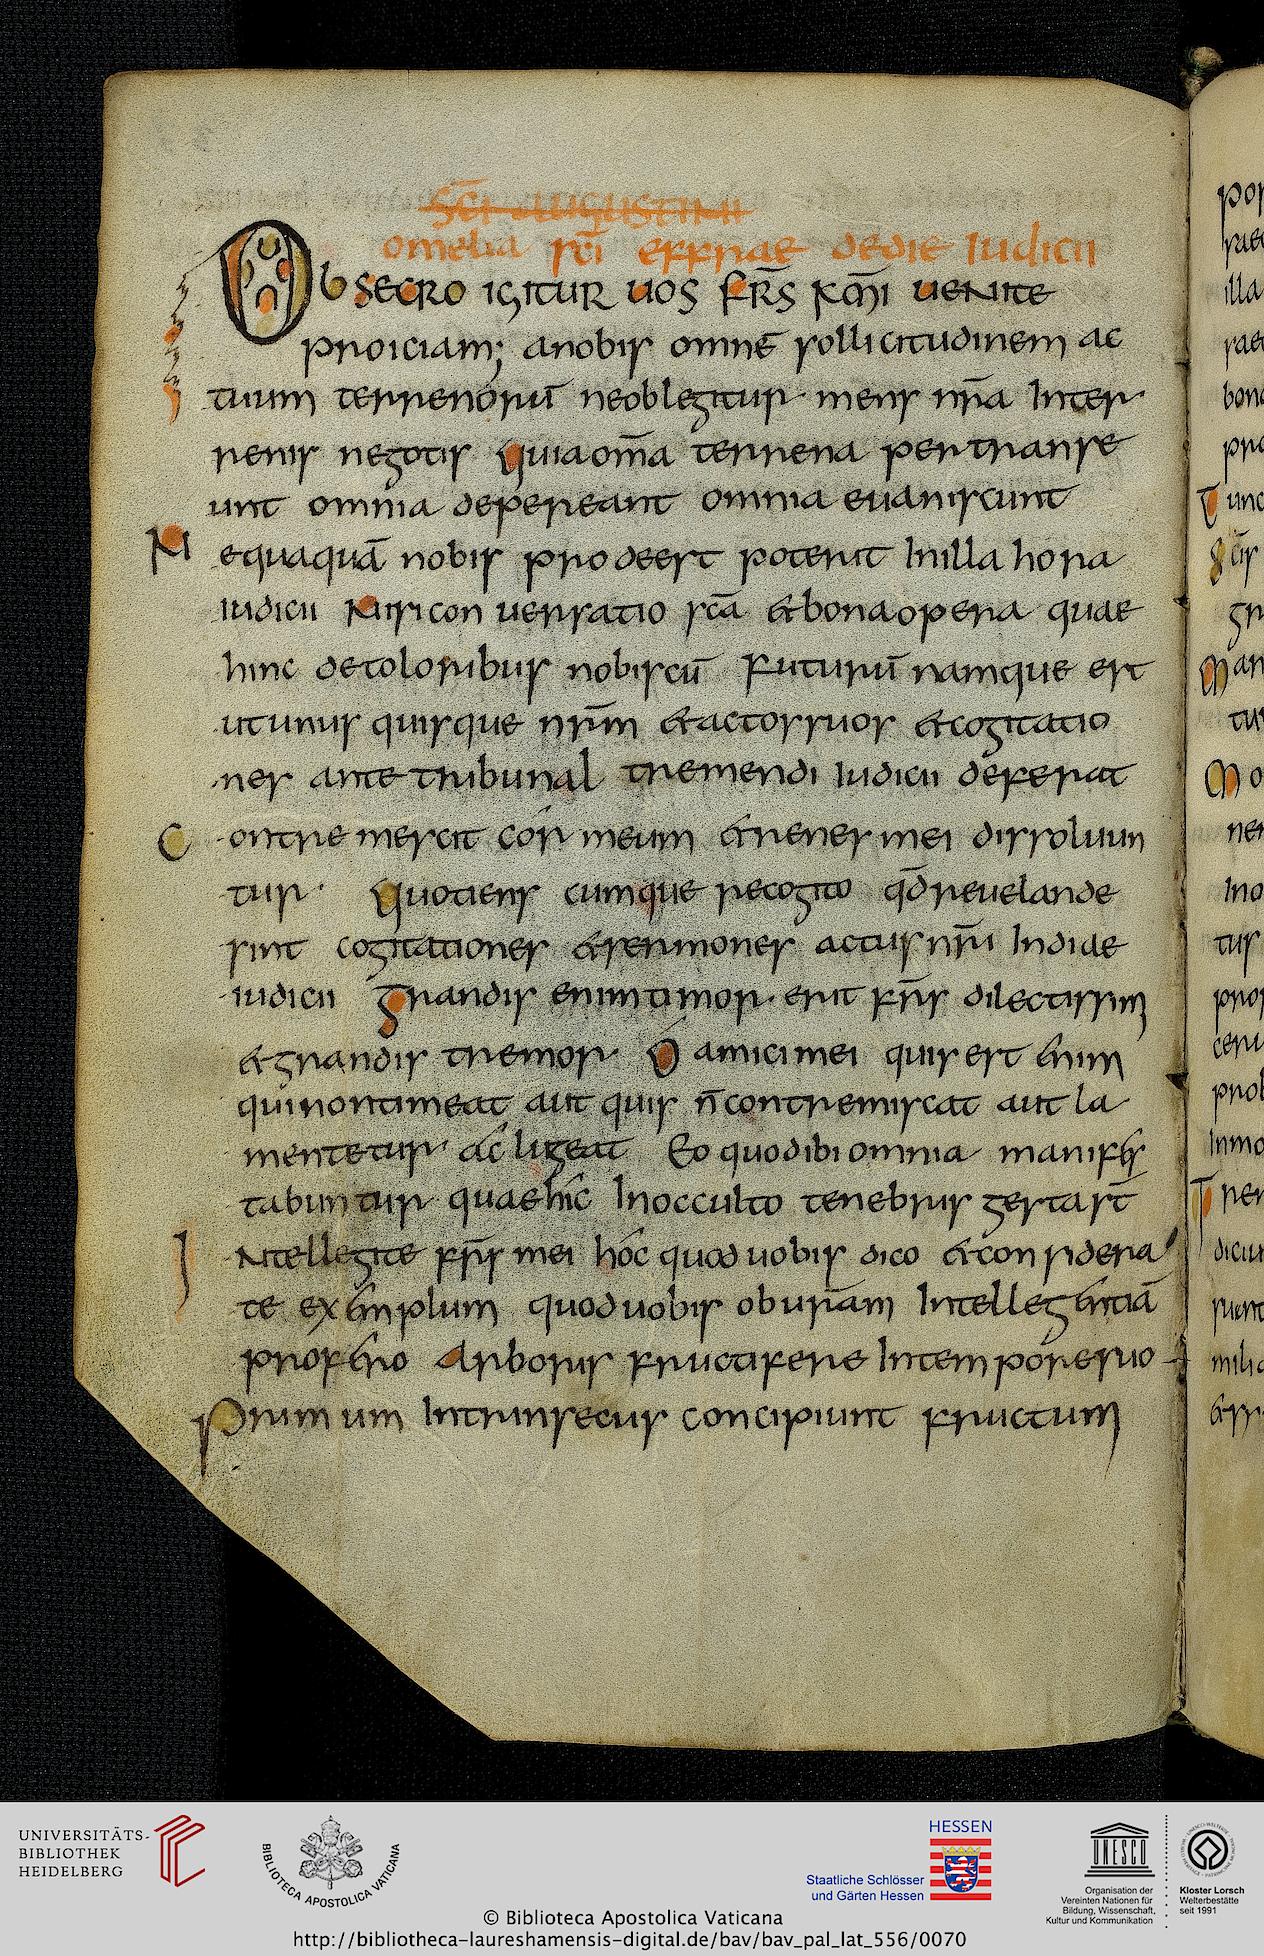 Sc̄i augustini
omelia sc̄i effrae dedie Iudicii
Obsecro igitur uos fr̄s km̄i uenite
proiciam; anobis omnē sollicitudinem ac
tuum terrenorū neoblegitur mens nr̄a Inter
renis negotis quiaom̄a terrena pertranse
unt omnia depereant omnia euaniscunt
Nequaquā nobis prodeest poterit Inilla hora
iudicii Nisicon uersatio sc̄a &bonaopera quae
hinc detoloribus nobiscū futurū namque est
utunus quisque nr̄m &actossuos &cogitatio
nes ante tribunal tremendi Iudicii deferat
Contremescit cór meum &renes mei dissoluun
tur. Quotiens cumque recogito qd̄reuelande
sint cogitationes &sermones actusnr̄i Indiae
iudicii grandis enimtimor erit fr̄s dilectissim
&grandis tremor O amicimei quisest enim
quinontimeat aut quis n̄contremiscat aut la
mentetur ac lugeat Eo quodibiomnia manifes
tabuntur quaehic Inocculto tenebris gestas̄t
INtellegite fr̄s mei hóc quod uobis dico &considera
te exemplum quoduobis oburam Intellegentiā
profero Arboris fructifere Intemporesuo
Primum Intrinsecus concipiunt fructum
UNIVERSITÄTS-
BIBLIOTHEK
HEIDELBERG
BIBLIOTECA APOSTOLICA VATICANA
HESSEN
Staatliche Schlösser
und Gärten Hessen
UNESCO
Organisation der
Vereinten Nationen für
Bildung, Wissenschaft,
Kultur und Kommunikation
Kloster Lorsch
Welterbestätte
seit 1991
© Biblioteca Apostolica Vaticana
http://bibliotheca-laureshamensis-digital.de/bav/bav_pal_lat_556/0070